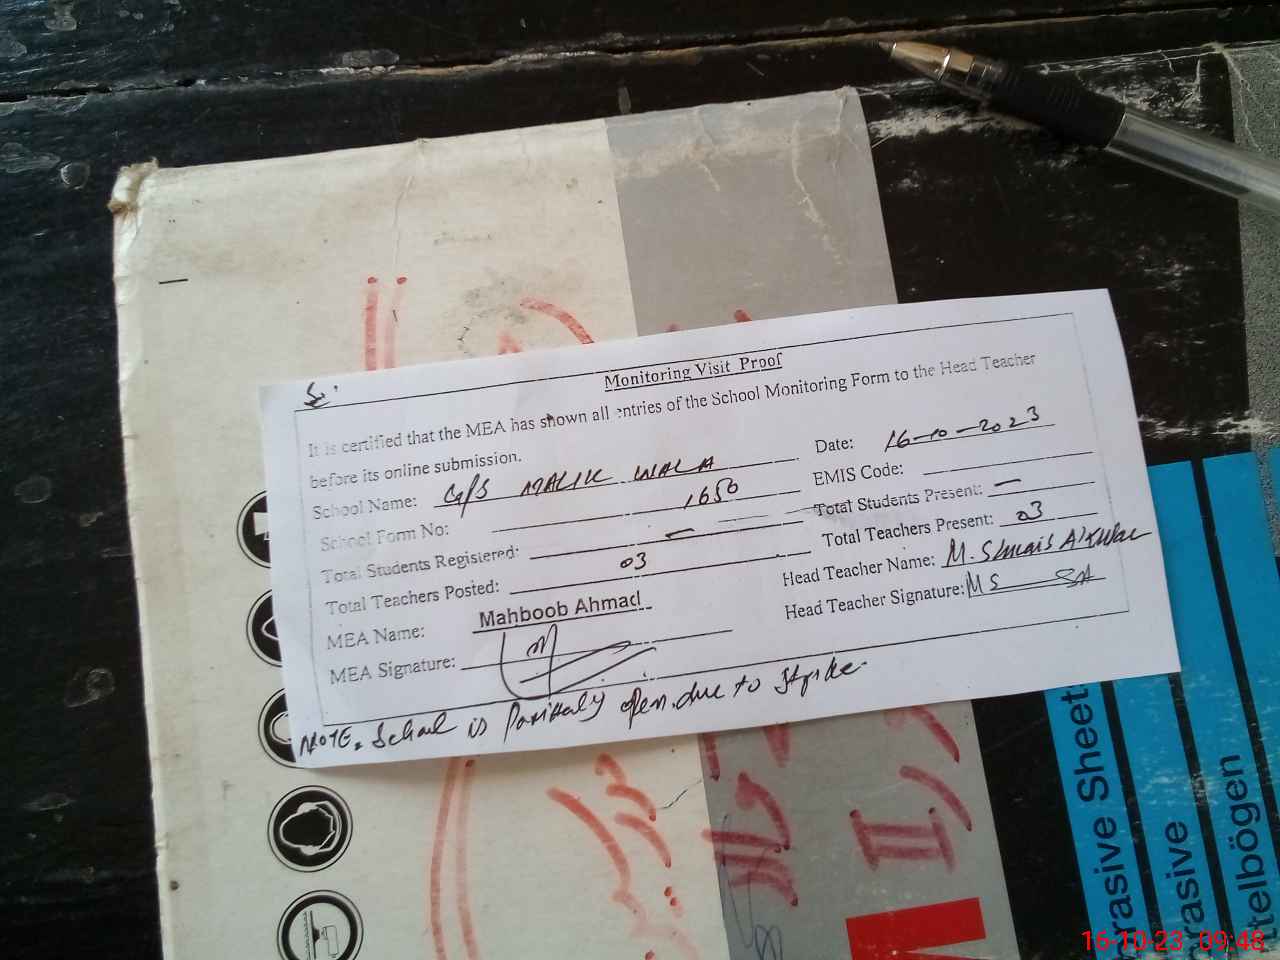 Monitoring Visit Proof
It is certified that the MEA has shown all entries of the School Monitoring Form to the Head Teacher
before its online submission.
Date: 16-10-2023
School Name: G/S MALIK WALA
EMIS Code:
School Form No: 1650
Total Students Present: —
Total Students Registered: —
Total Teachers Present: 03
Total Teachers Posted: 03
Head Teacher Name: M. Shuais
MEA Name: Mahboob Ahmad
Head Teacher Signature: MS
MEA Signature:
NOTE. School is Partially open due to strike.
II
rasive Sheet
rasive
ttelbögen
16-10-23 09:48